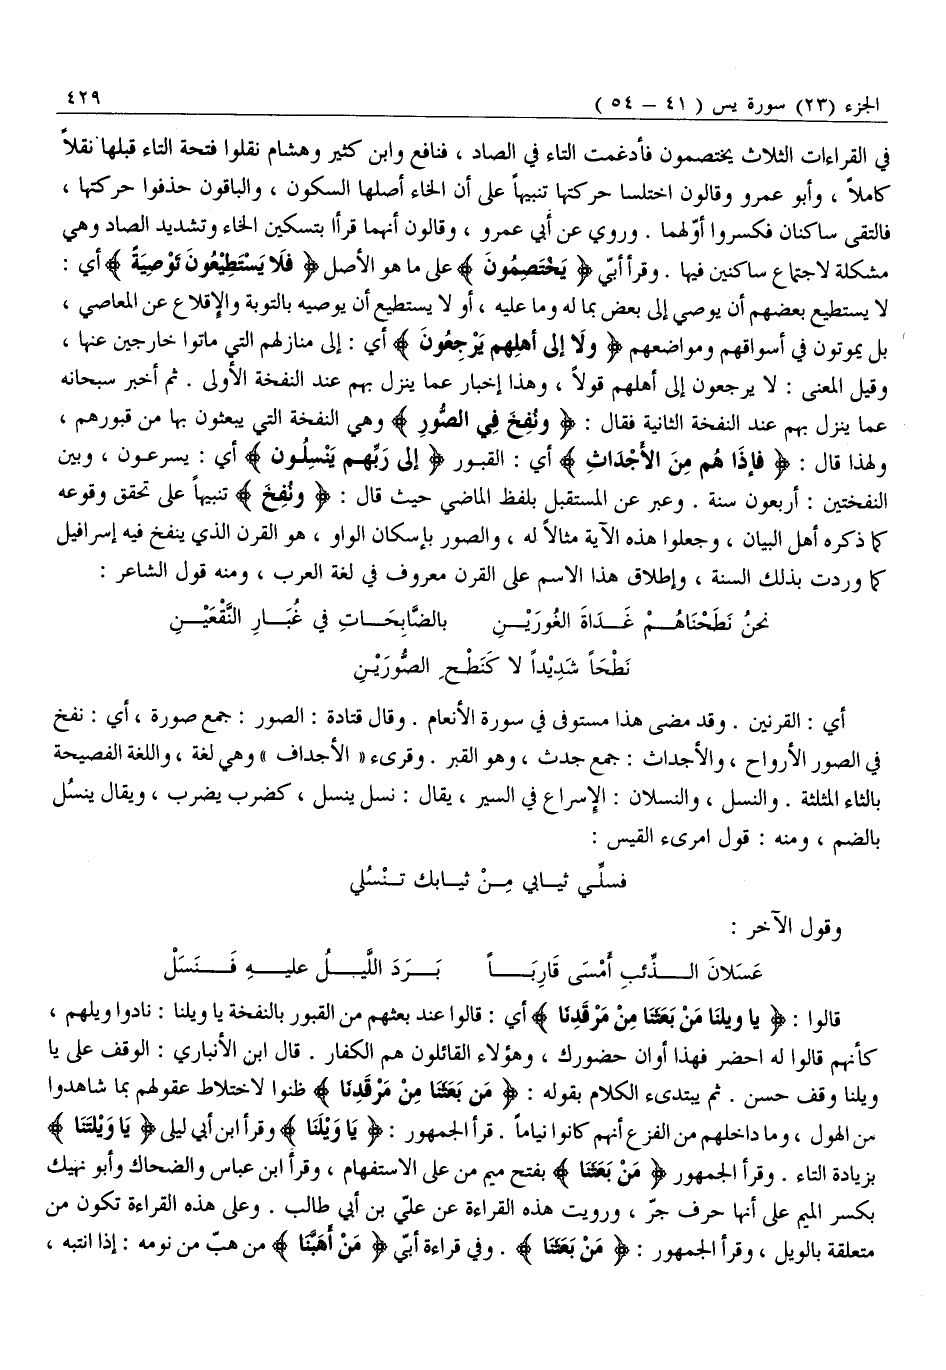 الجزء (٢٣) سورة يس ( ٤١ – ٥٤ ) ٤٢٩
في القراءات الثلاث يختصمون فأدغمت التاء في الصاد ، فنافع وابن كثير وهشام نقلوا فتحة التاء قبلها نقلاً
كاملاً ، وأبو عمرو وقالون اختلسا حركتها تنبيهاً على أن الخاء أصلها السكون ، والباقون حذفوا حركتها ،
فالتقى ساكنان فكسروا أوّلهما . وروي عن أبي عمرو ، وقالون أنهما قرأا بتسكين الخاء وتشديد الصاد وهي
مشكلة لاجتماع ساكنين فيها . وقرأ أبيّ ﴿ يَخْتَصِمُونَ ﴾ على ما هو الأصل ﴿ فَلَا يَسْتَطِيْعُونَ تَوْصِيَةً ﴾ أي :
لا يستطيع بعضهم أن يوصي إلى بعض بما له وما عليه ، أو لا يستطيع أن يوصيه بالتوبة والإقلاع عن المعاصي ،
بل يموتون في أسواقهم ومواضعهم ﴿ ولَا إلى أهلِهم يَرْجِعُونَ ﴾ أي : إلى منازلهم التي ماتوا خارجين عنها ،
وقيل المعنى : لا يرجعون إلى أهلهم قولاً ، وهذا إخبار عما ينزل بهم عند النفخة الأولى . ثم أخبر سبحانه
عما ينزل بهم عند النفخة الثانية فقال : ﴿ ونُفِخَ فِي الصُّورِ ﴾ وهي النفخة التي يبعثون بها من قبورهم ،
ولهذا قال : ﴿ فإذَا هُم مِنَ الأَجْدَاثِ ﴾ أي : القبور ﴿ إلى رَبِّهم يَنْسِلُون ﴾ أي : يسرعون ، وبين
النفختين : أربعون سنة . وعبر عن المستقبل بلفظ الماضي حيث قال : ﴿ ونُفِخَ ﴾ تنبيهاً على تحقق وقوعه
كما ذكره أهل البيان ، وجعلوا هذه الآية مثالاً له ، والصور بإسكان الواو ، هو القرن الذي ينفخ فيه إسرافيل
كما وردت بذلك السنة ، وإطلاق هذا الاسم على القرن معروف في لغة العرب ، ومنه قول الشاعر :
نحنُ نَطَحْنَاهُمْ غَدَاةَ الغُورَيْنِ بالضَّابِحَاتِ في غُبَارِ النَّقْعَيْنِ
نَطْحَاً شَدِيْداً لا كَنَطْحِ الصُّورَيْنِ
أي : القرنين . وقد مضى هذا مستوفى في سورة الأنعام . وقال قتادة : الصور : جمع صورة ، أي : نفخ
في الصور الأرواح ، والأجداث : جمع جدث ، وهو القبر . وقرىء « الأجداف » وهي لغة ، واللغة الفصيحة
بالثاء المثلثة . والنسل ، والنسلان : الإسراع في السير ، يقال : نسل ينسل ، كضرب يضرب ، ويقال ينسُل
بالضم ، ومنه : قول امرىء القيس :
فسلِّي ثيابي مِنْ ثيابك تنْسُلي
وقول الآخر :
عَسَلانَ الذِّئبِ أَمْسَى قَارِبَاً بَرَدَ اللَّيلُ عليهِ فَنَسَلْ
قالوا : ﴿ يا ويلنَا مَنْ بَعَثَنَا مِنْ مَرْقَدِنَا ﴾ أي : قالوا عند بعثهم من القبور بالنفخة يا ويلنا : نادوا ويلهم ،
كأنهم قالوا له احضر فهذا أوان حضورك ، وهؤلاء القائلون هم الكفار . قال ابن الأنباري : الوقف على يا
ويلنا وقف حسن . ثم يبتدىء الكلام بقوله : ﴿ مَن بَعَثَنَا مِنْ مَرْقَدِنَا ﴾ ظنوا لاختلاط عقولهم بما شاهدوا
من الهول ، وما داخلهم من الفزع أنهم كانوا نياماً . قرأ الجمهور : ﴿ يَا وَيْلَنَا ﴾ وقرأ ابن أبي ليلى ﴿ يَا وَيْلَتَنَا ﴾
بزيادة التاء . وقرأ الجمهور ﴿ مَنْ بَعَثَنَا ﴾ بفتح ميم من على الاستفهام ، وقرأ ابن عباس والضحاك وأبو نهيك
بكسر الميم على أنها حرف جرّ ، ورويت هذه القراءة عن عليّ بن أبي طالب . وعلى هذه القراءة تكون من
متعلقة بالويل ، وقرأ الجمهور : ﴿ مَنْ بَعَثَنَا ﴾ . وفي قراءة أبيّ ﴿ مَنْ أَهَبَّنَا ﴾ من هبّ من نومه : إذا انتبه ،